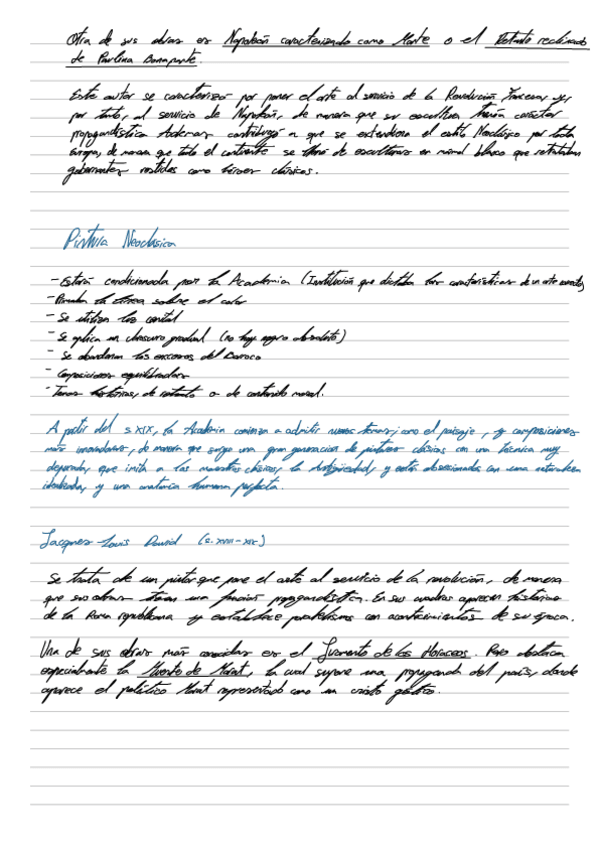 Otra de sus obras es Napoleón caracterizado como Marte o el Retrato reclinado
de Paulina Bonaparte.
Este autor se caracterizó por poner el arte al servicio de la Revolución Francesa, y
por tanto, al servicio de Napoleón, de manera que su escultura tenía carácter
propagandística. Además contribuyó a que se extendiera el estilo Neoclásico por toda
Europa, de manera que todo el continente se llenó de esculturas en mármol blanco que retrataban
gobernantes vestidos como héroes clásicos.
Pintura Neoclásica
- Estará condicionada por la Academia (Institución que dictaba las características de un arte
- la línea sobre el color
- Se utiliza luz cenital
- Se aplica un claroscuro gradual (no hay negro absoluto)
- Se abandonan los excesos del Barroco
- Composiciones equilibradas
- Temas históricos, de retrato o de contenido moral.
A partir del s XIX, la Academia comienza a admitir nuevos temas, como el paisaje, y composiciones
más innovadoras, de manera que surge una gran generación de pintores clásicos con una técnica muy
depurada, que imita a los maestros clásicos, la Antigüedad, y están obsesionados con una naturaleza
idealizada, y una anatomía humana perfecta.
Jacques Louis David (s. XVIII-XIX)
Se trata de un pintor que pone el arte al servicio de la revolución, de manera
que sus obras tienen una función propagandística. En sus cuadros aparecen historias
de la Roma republicana y establece paralelismos con acontecimientos de su época.
Una de sus obras más conocidas es el Juramento de los Horaceos. Pero destaca
especialmente la Muerte de Marat, la cual supone una propaganda del país, donde
aparece el político Marat representado como un cristo